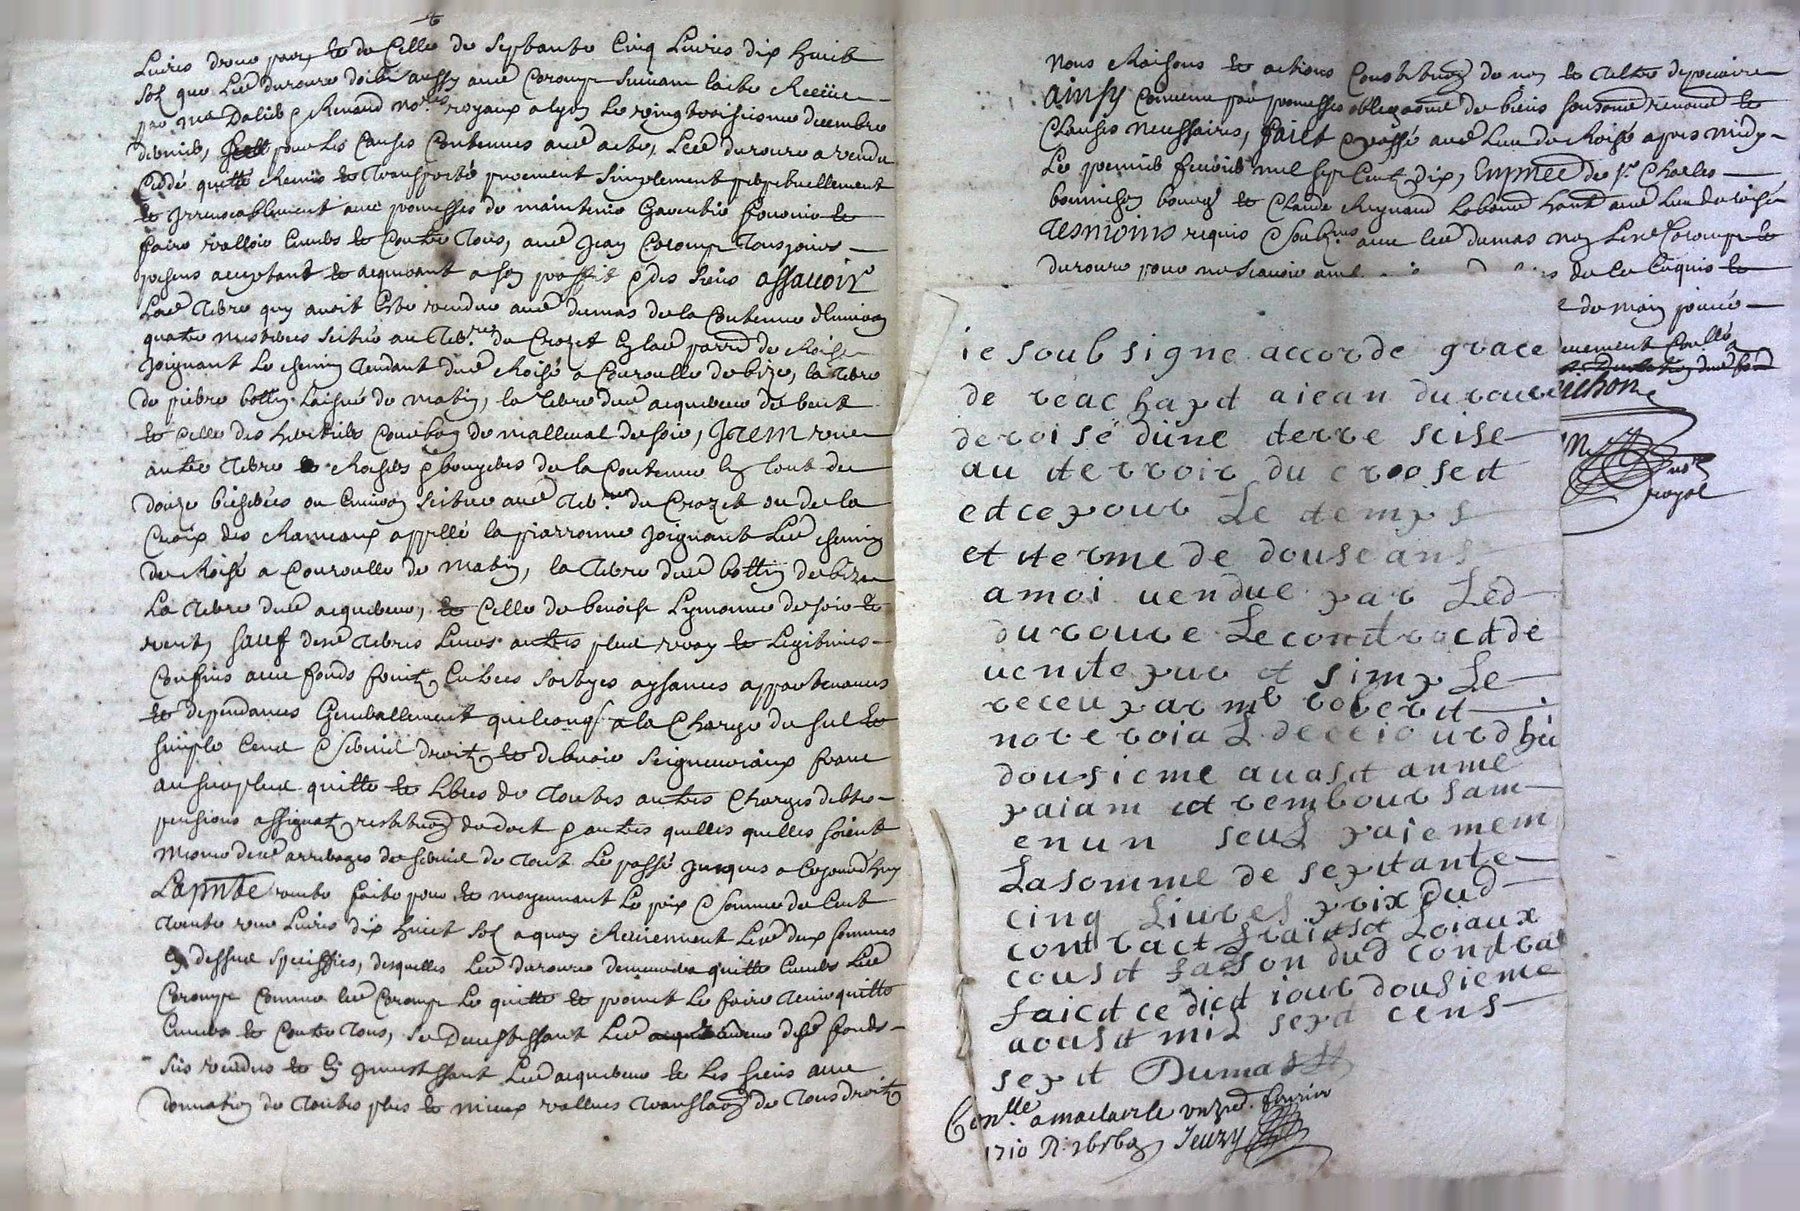 Livres d'une part et de celle de Septambre cinq livres dix huict
sols que led duroure doibt aussy aud Coromp suivant l'acte Receu
par me Dalier & Renaud nores royaux a lyon le vingt troisieme decembre
dernier, pour les causes contenues aud acte, Led duroure a vendu
cedé quitté Remis et transporté purement simplement perpetuellement
et jrrevocablement avec promesses de maintenir garentir fournir et
faire valloir envers et contre tous, aud Jean Coromp tousjours
present acceptant et acquerant a son proffit & des siens assavoir
La terre quy avoit esté vendue aud dumas de la contenue d'environ
quatre mestieres scitué au terr. du Crozet en lad parre de Roisé
Joignant le chemin tendant dud Roisé a Couroulle de bize, la terre
de pierre bottin laisné de matin, la terre dud acquereur de vent
et celle des heritiers de mallleval de soir, Jtem une
autre terre et Rochers & bougeries de la contenue en tout de
douze bicherées ou environ scituée aud terr. du Crozet ou de la
Croix des Rameaux appellé la piarronne joignant led chemin
de Roisé a Couroulle de matin, la terre dud bottin de bize
La terre dud acquereur, et celle de benoist Lymonne de soir et
vent, sauf desd terres leurs autres plus vray et legitimes
Confins avec fonds fruitz entrées sortyes aysances appartenances
et dependances generallement quelconq a la charge du seul et
simple cens & servis droitz et debvoirs seigneuriaux franc
au surplus quitte et libres de toutes autres charges debtes
pensions assignatz restitution de dot & autres quelles quelles soient
mesme desd arrerages de servis de tout le passé jusques a ce jourd'huy
La pnte vente faite pour et moyennant le prix & somme de cent
trente une livres dix huict sols a quoy Reviennent led deux sommes
cy dessus speciffiées, desquelles led duroure demeurera quitte envers led
Coromp comme led Coromp le quitte et promet le faire tenir quitte
envers et contre tous, se devestissant led desd fonds
sus vendus et en jnvestissant led acquereur et les siens avec
donnation de toutes plus et mieux vallues translaon de tous droitz
Noms Raisons et actions constitution de non et tiltre de precaire
ainsy convenu par promesses obligaone de biens soumons renonc et
clauses necessaires, faict & passé aud lieu de Roisé apres midy
Le premier fevrier mil sept cent dix, en pnce de sr Charles
bonnichon bourgs et Claude Reynaud laboure hantt aud lieu de roisé
tesmoins requis & soubz. avec led dumas non led Coromp et
duroure pour ne scavoir de ce enquis et
de main privée
royal
ie soub signe accorde grace
de reachapt aiean duroure
deroise dune terre scise
au terroir du crooset
et ce pour Le temps
et terme de douse ans
amoi vendue par Led
duroure Le contract de
vente pur et simp Le
receu par mr robert
note roial de ceiourdhui
dousieme auost anme
paiam et rembour sam
en un seul paiemem
La somme de septante
cinq Livres prix dud
contract fraits et Loiaux
coust fasson dud contra
faict ce dict iour dousieme
aoust mil sept cens
sept Dumas
Conlle a maclas le unzie fevrier
1710 Jeuzy